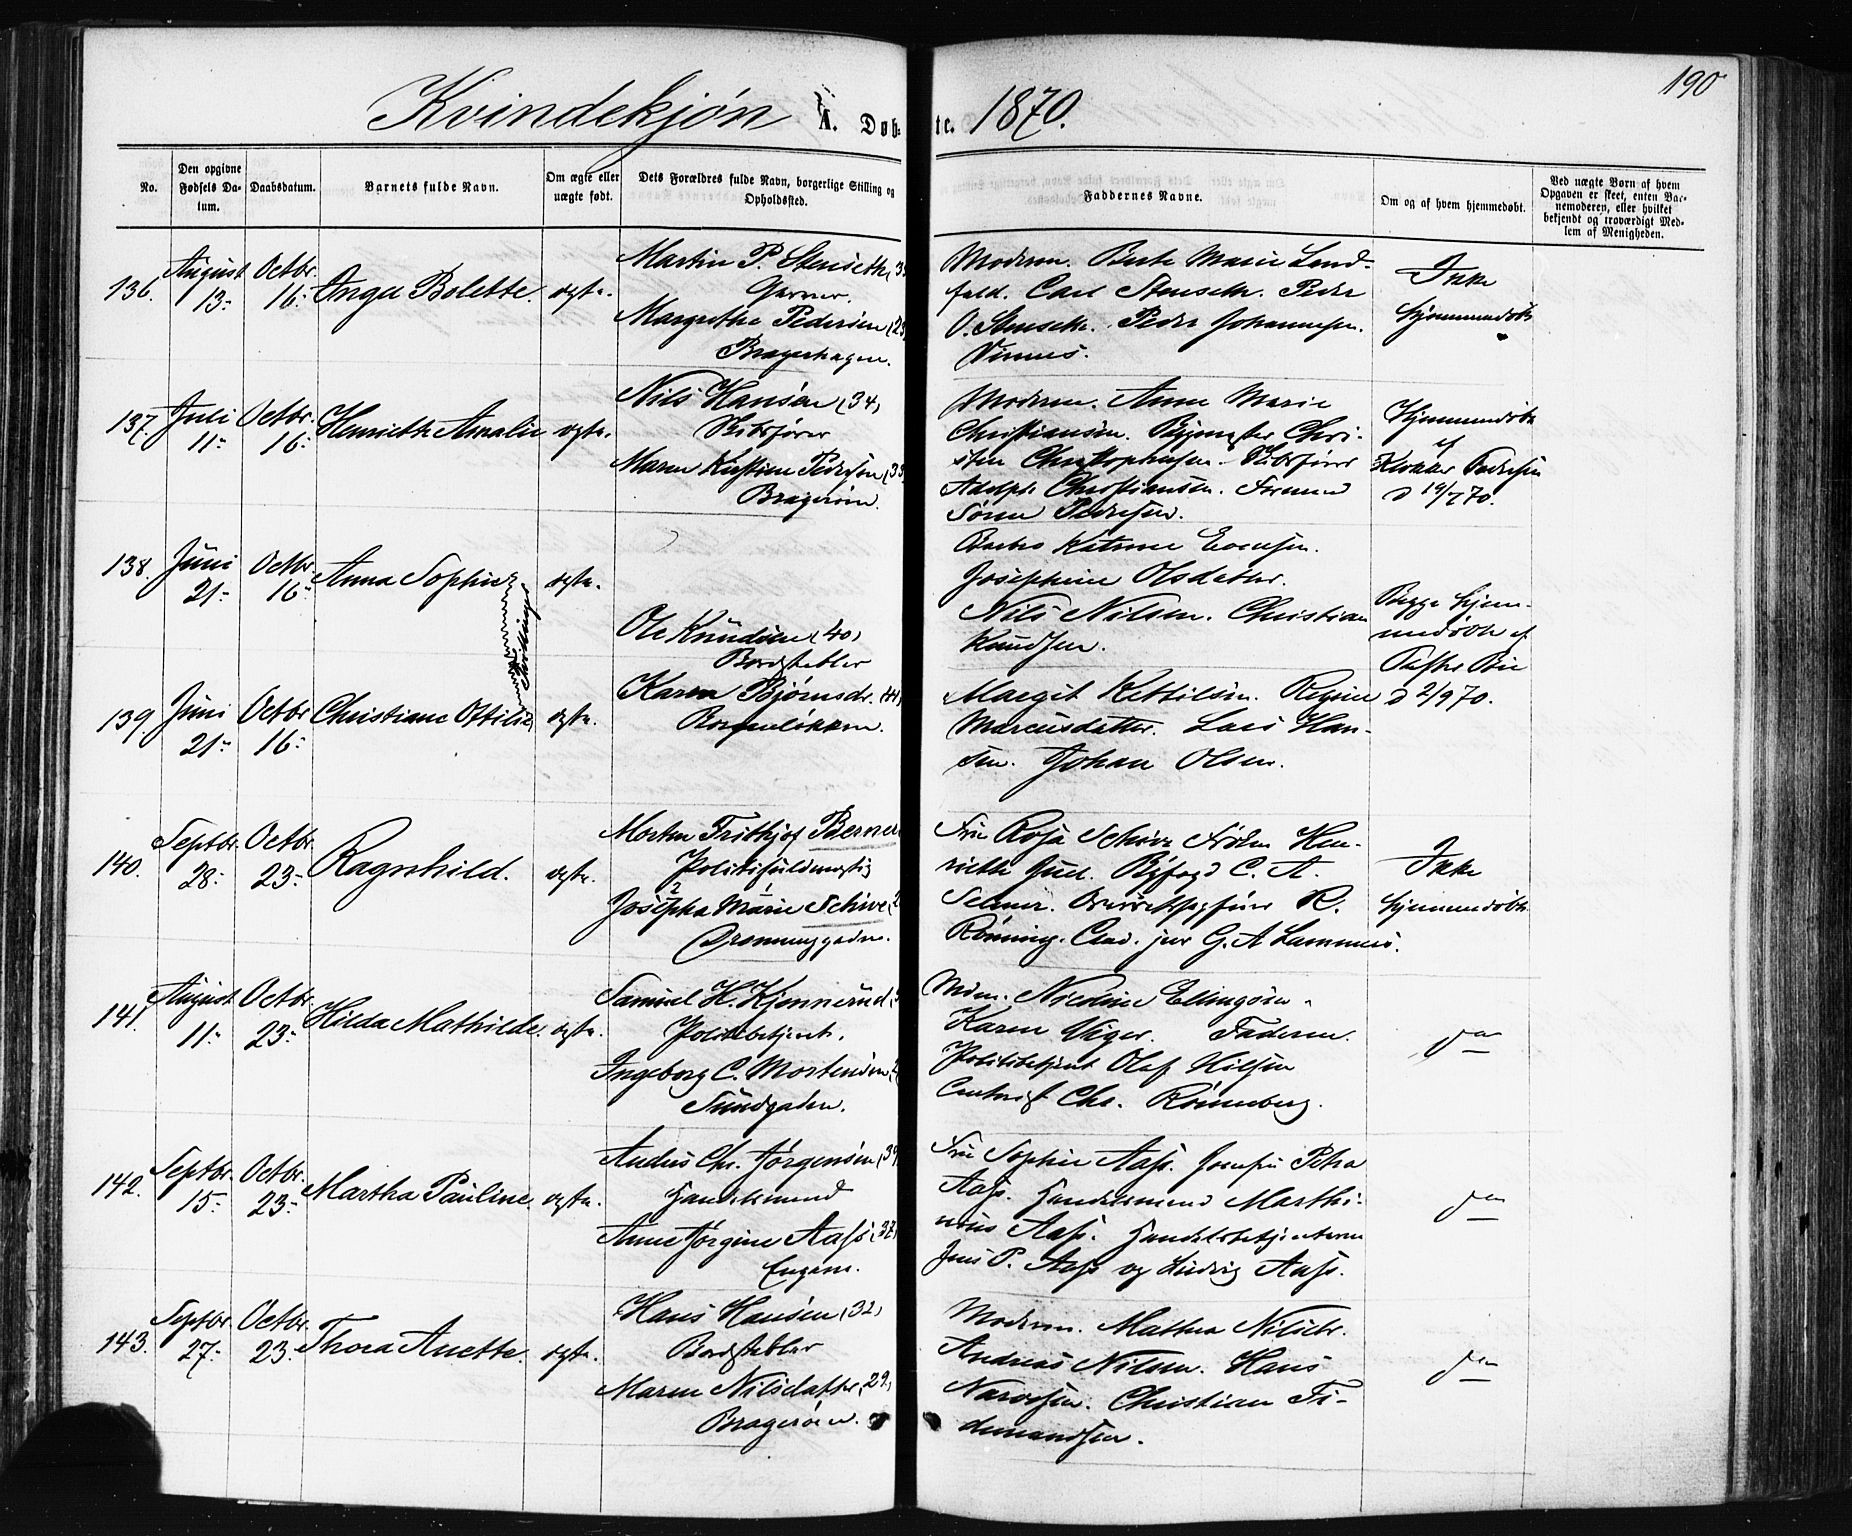 190
Kvindekjøn A. Døb-te. 1870.
No.
Den opgivne Fødsels Da-tum.
Daabsdatum.
Barnets fulde Navn.
Om ægte eller uægte født.
Dets Forældres fulde Navn, borgerlige Stilling og Opholdssted.
Faddernes Navne.
Om og af hvem hjemmedøbt.
Ved uægte Børn af hvem Opgaven er skeet, enten Bar-nemoderen, eller hvilket bekjendt og troværdigt Med-lem af Menigheden.
136. August 13. Octbr. 16. Inga Bolette. ægte.
Martin P. Stenseth (3
Garver.
Margrethe Pedersen (2
Bragerhagen.
Moderen. Berte Marie Lend-
feld. Carl Stenseth. Peder
O. Stenseth. Peder Johannesen.
Vinnes.
Ikke
hjemmedøbt
137. Juli 11. Octbr. 16. Henriette Amalie ægte.
Nils Hansen (34)
Maren Kirstine Pedersen (33
Bragerøen.
Moderen. Anne Marie
Christiansen. Bygmester Chri-
sten Christophersen.
Adolph Christiansen. Formand
Søren Pedersen.
Hjemmedøbt
af
Klokker Pedersen
d 19/7 70.
138. Juni 21. Octbr. 16. Anna Sophie ægte.
Tvillinger
Ole Knudsen (40)
Bordstabler
Karen Bjørnsdr. (41)
Borgenløkken.
Barbro Katrine Evensen.
Josephine Olsdatter.
Nils Nilsen. Christian
Knudsen.
Begge hjem-
medøbte af
d 2/9 70.
139. Juni 21. Octbr 16. Christiane Ottilie, ægte.
Margit Kettilsen. Regine
Marcusdatter. Lars Han-
sen. Johan Olsen.
140. Septbr. 28. Octbr. 23. Ragnhild. ægte.
Morten Frithjof Berner
Politifuldmægtig
Josepha Marie Schive (2
Dronninggaden.
Fru Rosa Schive Frøken Hen-
riette Gud. Byfogd C. A.
Selmer. Overretssagfører R.
Rønning. Cand. jur G. A Lammers.
Ikke
hjemmedøbt
141. August 11. Octbr. 23. Hilda Mathilde. ægte.
Samuel H. Kjennerud,
Politibetjent.
Ingeborg C. Mortensen,
Sundgaden.
Mdm. Nicoline Ellingsen.
Karen Viger. Faderen.
Politibetjent Olaf Nilsen
Chr. Rønneberg.
do
142. Septbr. 15. Octbr. 23. Martha Pauline. ægte.
Anders Chr. Jørgensen (39
Handelsmand
Anne Jørgine Aass (37)
Engene.
Fru Sophie Aass. Jomfru Petra
Aass. Handelsmand Marthi-
nius Aass. Handelsbetjenterne
Jens P. Aass og Ludvig Aass.
do
143. Septbr. 27. Octbr. 23. Thora Anette. ægte.
Hans Hansen (32)
Bordstabler
Maren Nilsdatter (29)
Bragerøen.
Moderen. Mathea Nilsdr.
Andreas Nilsen. Hans
Narvesen. Christian Ti-
demandsen.
do